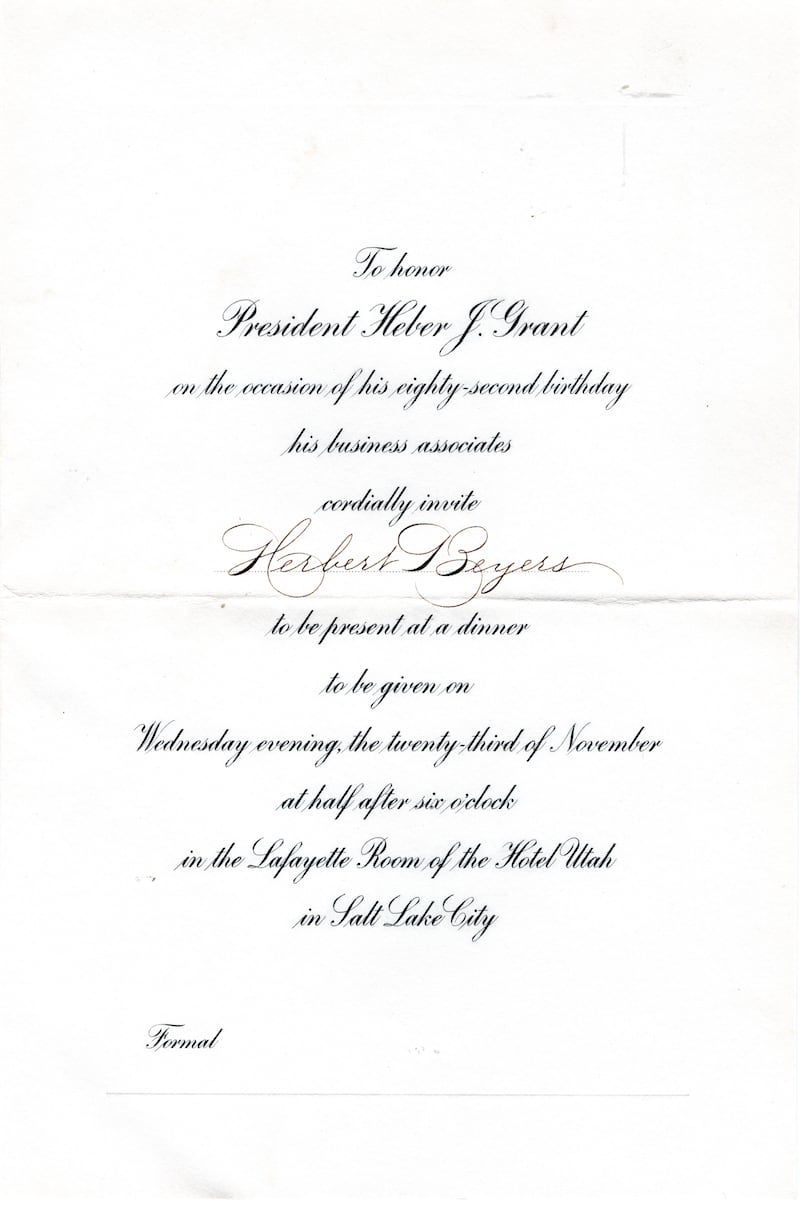 To honor
President Heber J. Grant
on the occasion of his eighty-second birthday
his business associates
cordially invite
Herbert Beyers
to be present at a dinner
to be given on
Wednesday evening, the twenty-third of November
at half after six o'clock
in the Lafayette Room of the Hotel Utah
in Salt Lake City
Formal